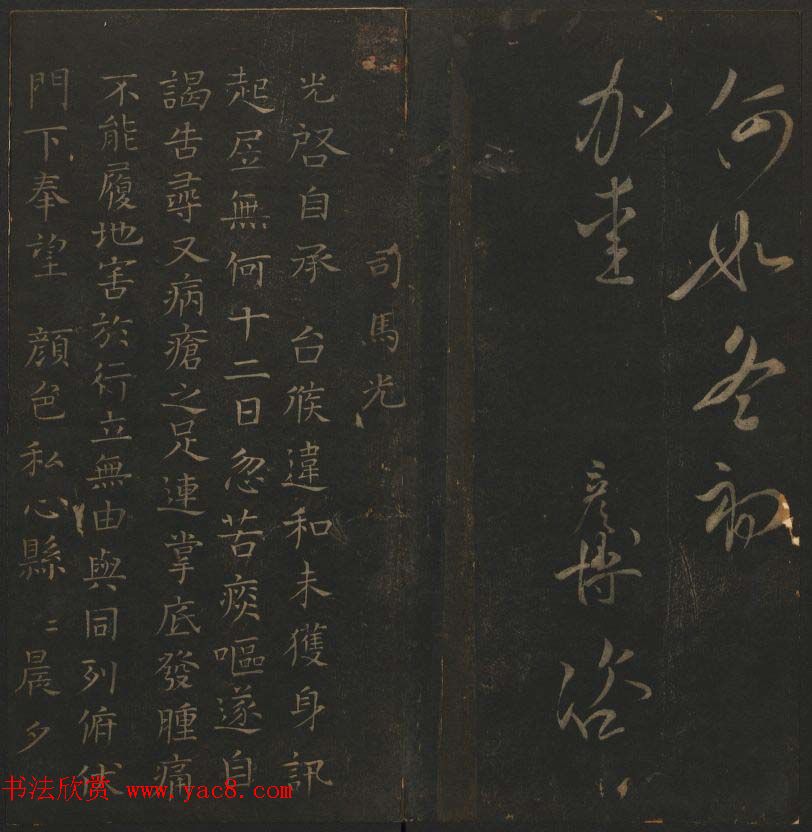 何如冬初
加愛
彥博咨
司馬光
光啓自承 台候違和未獲身訊
起居無何十二日忽苦痰嘔遂自
謁告尋又病瘡之足連掌底發腫痛
不能履地害於行立無由與同列俯伏
門下奉望 顔色私心縣〻晨夕
书法欣赏 www.yac8.com